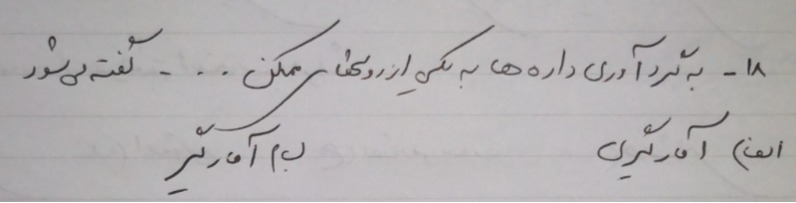 ۱۸- به گردآوری داده ها به یکی از روشهای ممکن ... - گفته می شود
الف) آمارگیری ب) آمارگیر